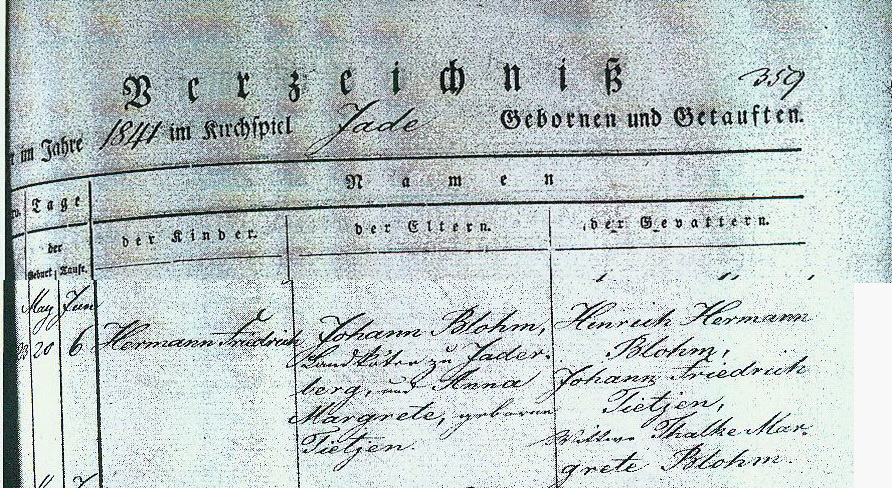 Verzeichniß
359
im Jahre 1841 im Kirchspiel Jade Gebornen und Getauften.
Tage
Namen
der
der Kinder.
der Eltern.
der Gevattern.
Geburt, Taufe.
May Jun
20 6 Hermann Friedrich
Johann Blohm,
Landköter zu Jader-
berg, und Anna
Margrete, geborne
Tietjen.
Hinrich Hermann
Blohm,
Johann Friedrich
Tietjen,
Wittwe Thalke Mar-
grete Blohm.